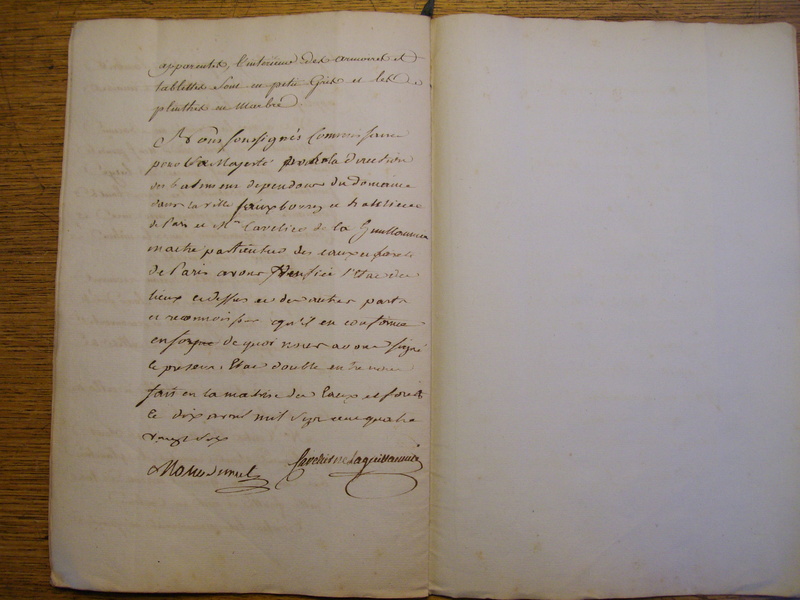 apparentes, l'interieur des armoires et
tablettes sont en petit Gris et les
plinthes en Marbre.
Nous soussignés Commissaire
pour Sa Majesté la direction
des batimens dependans du domaine
dans la ville fauxbourg et banlieue
de Paris et Mr Cavelier de la Guillaumie
maitre particulier des eaux et forets
de Paris avons verifié l'Etat des
lieux cydessus et des autres parts
et reconnoissons qu'il en conforme
en foy de quoi nous avons signé
le present Etat double entre nous
fait en la maitrise des Eaux et forets
le dix avril mil sept cent quatre
vingt six
Cavelier de la guillaumie